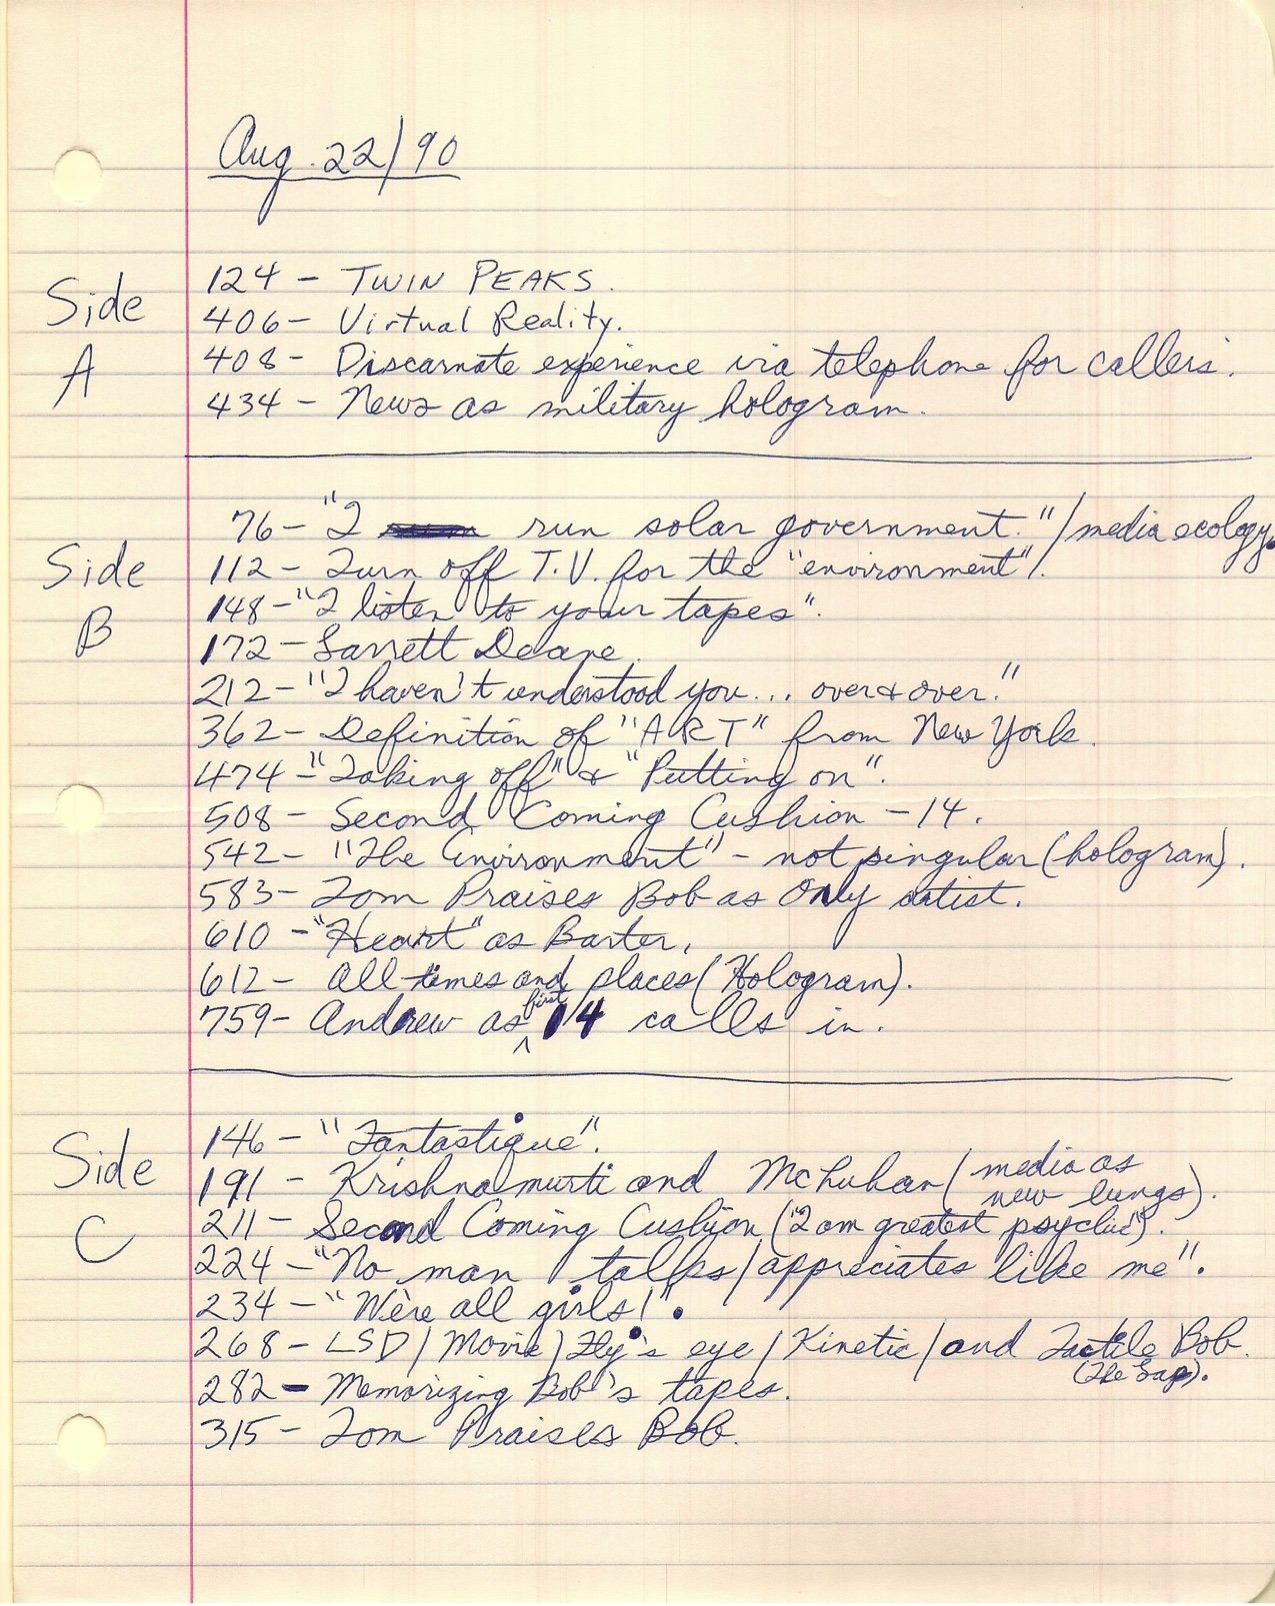 Aug. 22/90
Side A
124 - TWIN PEAKS.
406 - Virtual Reality.
408 - Discarnate experience via telephone for callers.
434 - News as military hologram.
Side B
76 - "I run solar government."/media ecology.
112 - Turn off T.V. for the "environment".
148 - "I listen to your tapes".
172 - Garrett Deane.
212 - "I haven't understood you... over & over."
362 - Definition of "ART" from New York.
474 - "Taking off" & "Putting on".
508 - Second Coming Cushion - 14.
542 - "The Environment" - not singular (hologram).
583 - Tom Praises Bob as Only artist.
610 - "Heart" as Barter.
612 - All times and places (Hologram).
759 - Andrew as first 14 calls in.
Side C
146 - "Fantastique".
191 - Krishnamurti and McLuhan (media as new lungs).
211 - Second Coming Cushion ("I am greatest psychic").
224 - "No man talks/appreciates like me".
234 - "We're all girls!".
268 - LSD/Movie/Fly's eye/Kinetic/and Tactile Bob.
(The Gap).
282 - Memorizing Bob's tapes.
315 - Tom Praises Bob.